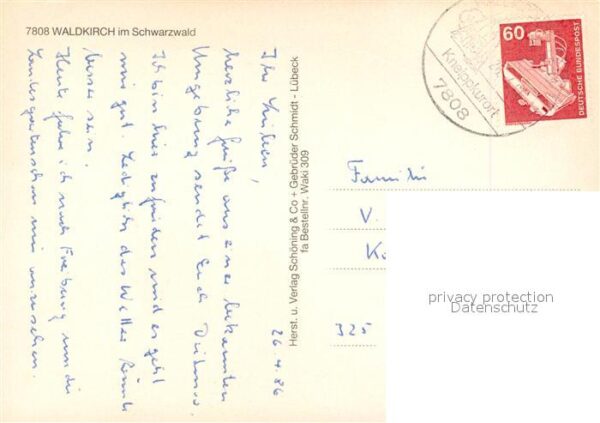 7808 WALDKIRCH im Schwarzwald
26.4.86
Ihr Lieben,
herzliche Grüße aus einer bekannten
Umgebung sendet Euch
Ich bin hier zufrieden und es geht
mir gut. Lediglich das Wetter könnte
besser sein.
Heute fahre ich nach Freiburg um die
Landesgartenschau mir anzusehen.
Herst. u. Verlag Schöning & Co + Gebrüder Schmidt - Lübeck
fa Bestellnr. Waki 309
Kneippkurort
7808
60
DEUTSCHE BUNDESPOST
Familie
V.
K
325
privacy protection
Datenschutz